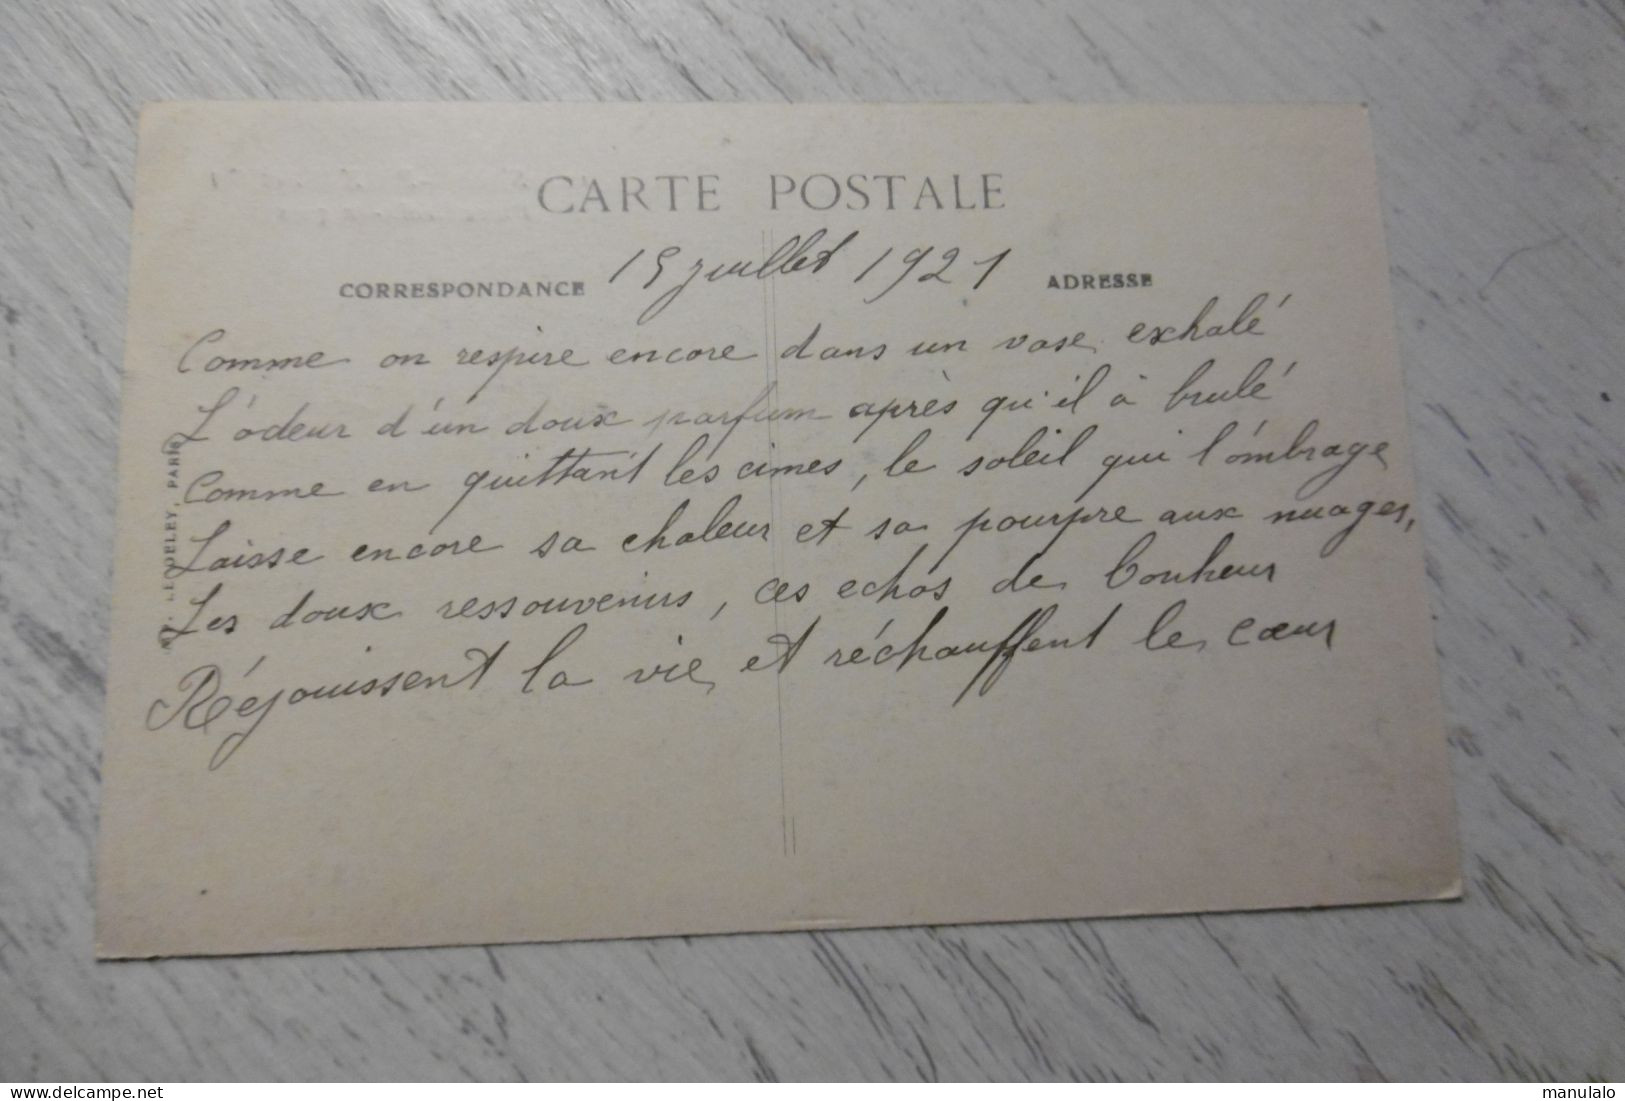 CARTE POSTALE
CORRESPONDANCE
15 juillet 1921
ADRESSE
Comme on respire encore dans un vase exhalé
L'odeur d'un doux parfum après qu'il à brulé
Comme en quittant les cimes, le soleil qui l'ombrage
Laisse encore sa chaleur et sa pourpre aux nuages,
Les doux ressouvenirs, ces echos de bonheur
Réjouissent la vie et réchauffent le cœur
LEDELEY, PARIS
www.delcampe.net
manulalo